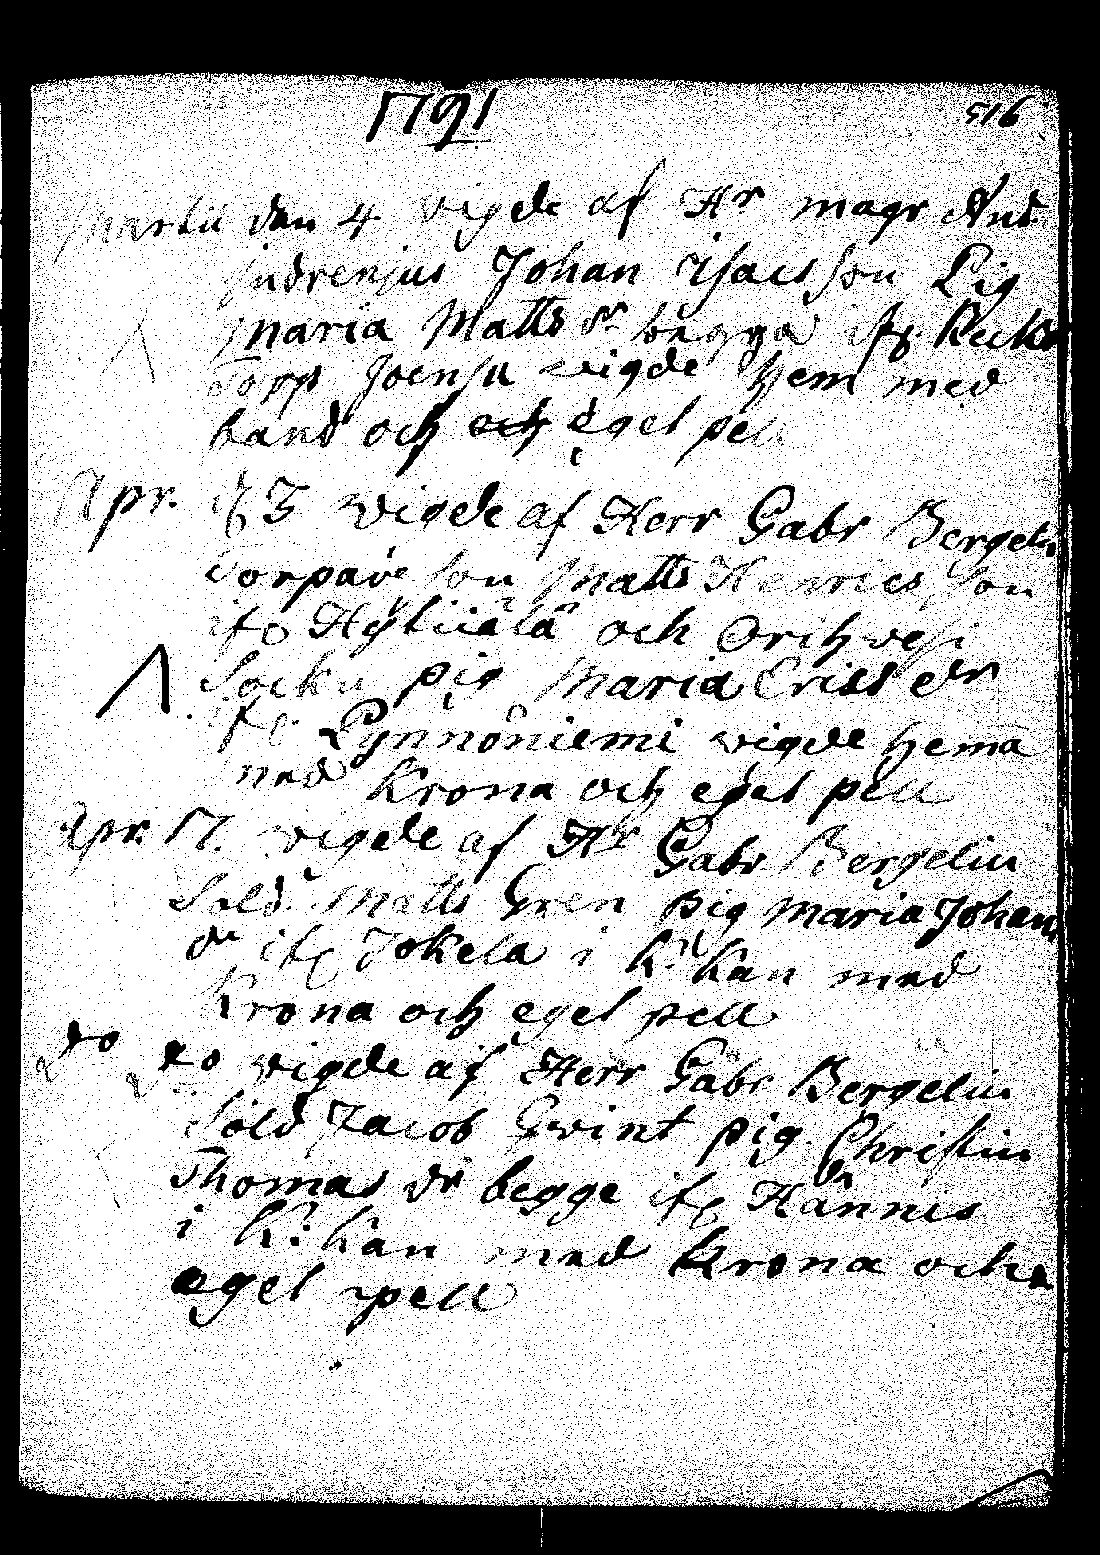 1791
516
Martii den 4 vigde af Hr magr And.
Indrenius Johan Isacsson Pig
Maria Matts dr begga ifr
Torp Joensu wigde hem med
band och och eget pell
Apr. d 3 wigde af Herr Gabr Bergelin
Torpare son Matts Henrics son
ifr och Orihvesi
Sockn pig Maria Ericsdr
ifr Pynnöniemi wigde hema
med Krona och eget pell
Apr. 17. vigde af Hr Gabr Bergelin
Sold. Matts Gren pig Maria Johans
dr ifr Jokela i K: Kån med
Krona och eget pell
do do vigde af Herr Gabr Bergelin
Sold Jacob Gvint pig Christin
Thomas dr begge ifr
i K: Kån med Krona och
eget pell